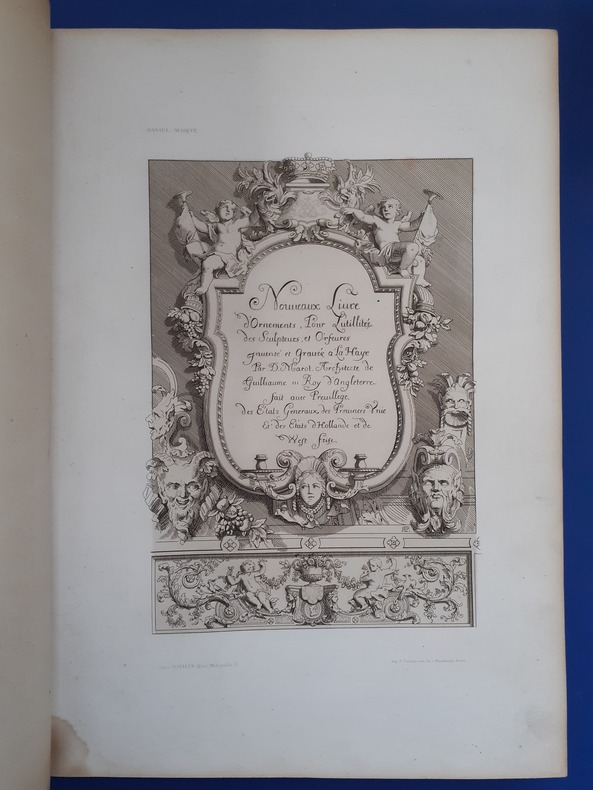 DANIEL MAROT.
Nouueaux Liure
d'Ornements, Pour L'utillité
des Sculpteurs, et Orfeures
jnuenté et Grauée a La Haye
Par D. Marot. Architecte de
Guilliaume III Roy d'Angleterre
fait auec Preuillege
des Etats Generaux des Prouinces Vnie
Et des Etats d'Hollande et de
West frise.